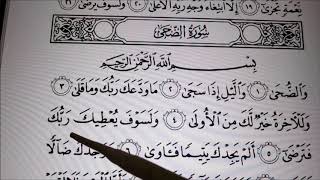 نِّعْمَةٍ تُجْزَىٰ ١٩ إِلَّا ٱبْتِغَآءَ وَجْهِ رَبِّهِ ٱلْأَعْلَىٰ ٢٠ وَلَسَوْفَ يَرْضَىٰ ٢١
سُورَةُ الضُّحَىٰ
بِسْمِ ٱللَّهِ ٱلرَّحْمَٰنِ ٱلرَّحِيمِ
وَٱلضُّحَىٰ ١ وَٱلَّيْلِ إِذَا سَجَىٰ ٢ مَا وَدَّعَكَ رَبُّكَ وَمَا قَلَىٰ ٣
وَلَلْآخِرَةُ خَيْرٌ لَّكَ مِنَ ٱلْأُولَىٰ ٤ وَلَسَوْفَ يُعْطِيكَ رَبُّكَ
فَتَرْضَىٰ ٥ أَلَمْ يَجِدْكَ يَتِيمًا فَـَٔاوَىٰ ٦ وَوَجَدَكَ ضَآلًّا